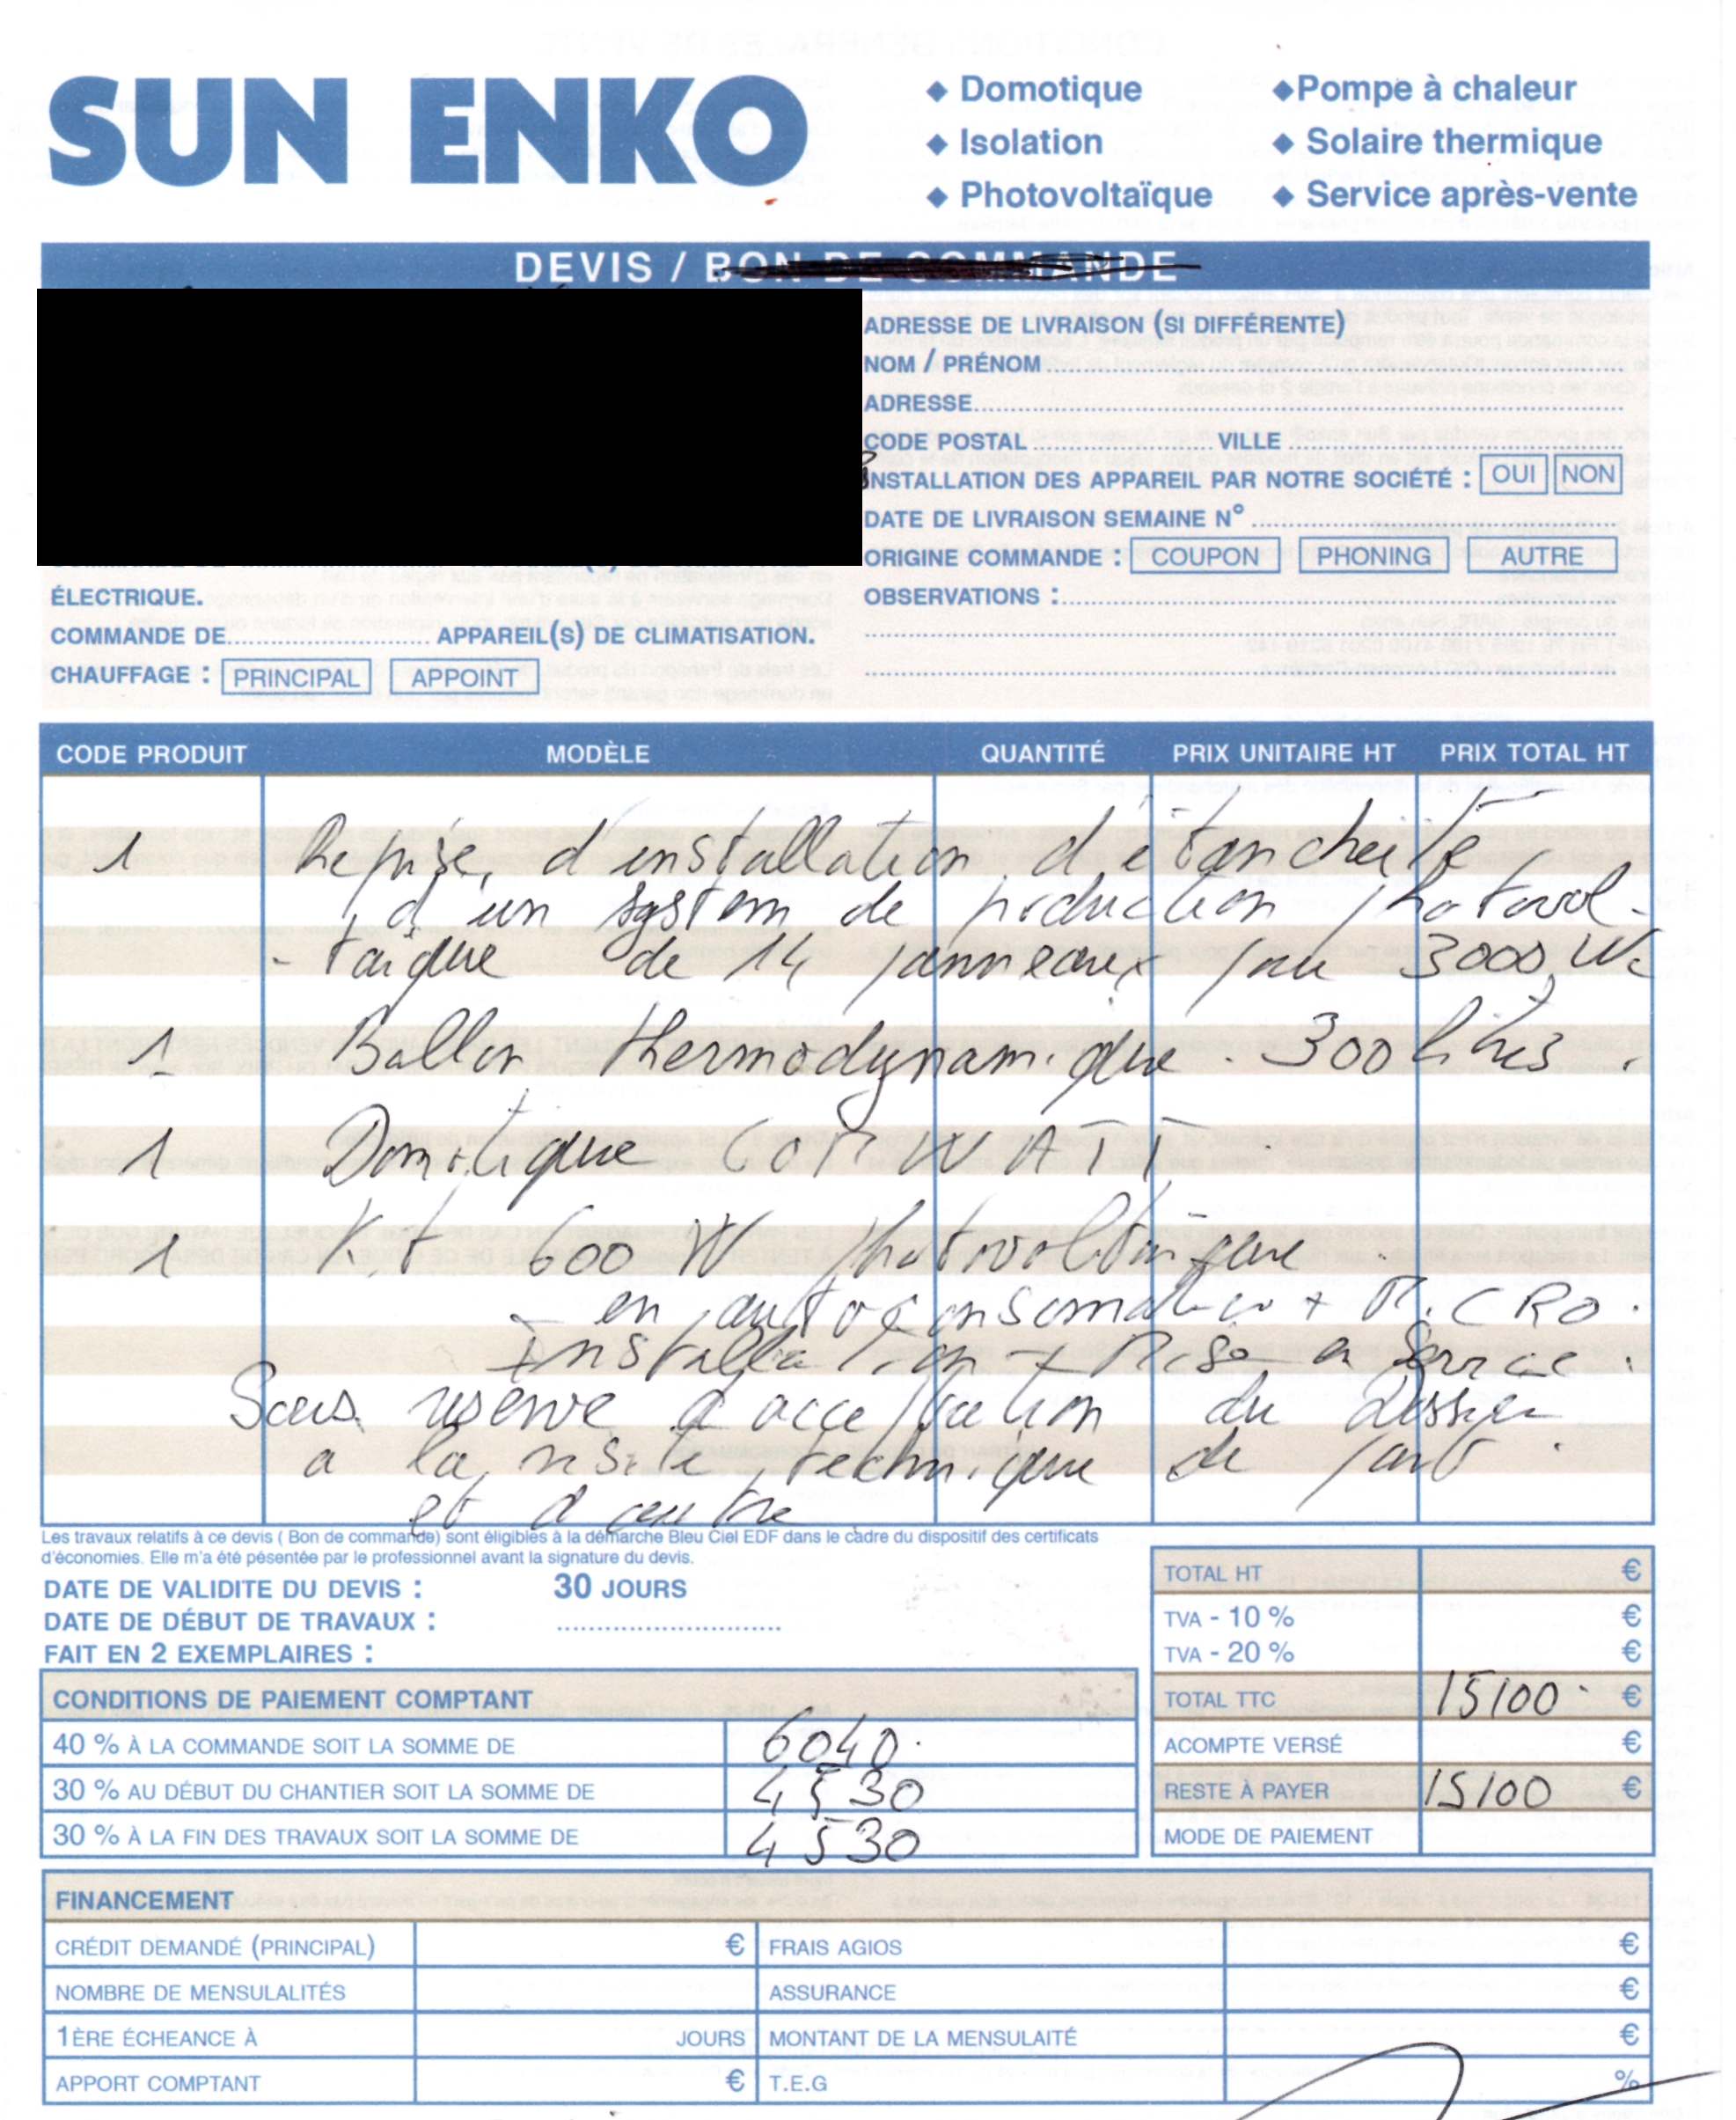 SUN ENKO
◆ Domotique ◆ Pompe à chaleur
◆ Isolation ◆ Solaire thermique
◆ Photovoltaïque ◆ Service après-vente
DEVIS / BON DE COMMANDE
ADRESSE DE LIVRAISON (SI DIFFÉRENTE)
NOM / PRÉNOM
ADRESSE
CODE POSTAL VILLE
INSTALLATION DES APPAREIL PAR NOTRE SOCIÉTÉ : OUI NON
DATE DE LIVRAISON SEMAINE N°
ORIGINE COMMANDE : COUPON PHONING AUTRE
OBSERVATIONS :
ÉLECTRIQUE.
COMMANDE DE APPAREIL(S) DE CLIMATISATION.
CHAUFFAGE : PRINCIPAL APPOINT
CODE PRODUIT MODÈLE QUANTITÉ PRIX UNITAIRE HT PRIX TOTAL HT
1 Reprise d'installation d'étancheité
d'un system de production photovol-
-taique de 14 panneaux pour 3000 Wc
1 Ballon thermodynamique. 300 litres.
1 Domotique COMWATT.
1 Kit 600 W photovoltaique
en autoconsomation + MICRO.
Installation + Mise en Service.
Sous reserve d'acceptation du Dossier
a la visite technique de part
et d'autre
Les travaux relatifs à ce devis ( Bon de commande) sont éligibles à la démarche Bleu Ciel EDF dans le cadre du dispositif des certificats
d'économies. Elle m'a été pésentée par le professionnel avant la signature du devis.
DATE DE VALIDITE DU DEVIS : 30 JOURS
DATE DE DÉBUT DE TRAVAUX :
FAIT EN 2 EXEMPLAIRES :
CONDITIONS DE PAIEMENT COMPTANT
40 % À LA COMMANDE SOIT LA SOMME DE 6040.
30 % AU DÉBUT DU CHANTIER SOIT LA SOMME DE 4530
30 % À LA FIN DES TRAVAUX SOIT LA SOMME DE 4530
TOTAL HT €
TVA - 10 % €
TVA - 20 % €
TOTAL TTC 15100 €
ACOMPTE VERSÉ €
RESTE À PAYER 15100 €
MODE DE PAIEMENT
FINANCEMENT
CRÉDIT DEMANDÉ (PRINCIPAL) € FRAIS AGIOS €
NOMBRE DE MENSULALITÉS ASSURANCE €
1ÈRE ÉCHEANCE À JOURS MONTANT DE LA MENSULAITÉ €
APPORT COMPTANT € T.E.G %